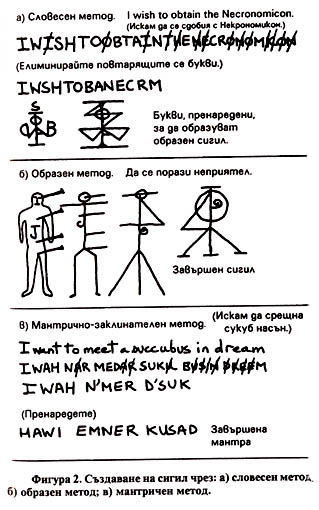 а) Словесен метод. I wish to obtain the Necronomicon.
(Искам да се сдобия с Некрономикон.)
IWISHTOOBTAINTHENECRONOMICON
(Елиминирайте повтарящите се букви.)
IWSHTOBANECRM
S
B
Букви, пренаредени,
за да образуват
образен сигил.
б) Образен метод. Да се порази неприятел.
J
Завършен сигил
в) Мантрично-заклинателен метод. (Искам да срещна
сукуб насън.)
I want to meet a succubus in dream
I WAH NAR MEDAR SUKU BUSIN DREEM
I WAH N'MER D'SUK
(Пренаредете)
HAWI EMNER KUSAD Завършена
мантра
Фигура 2. Създаване на сигил чрез: а) словесен метод
б) образен метод; в) мантричен метод.